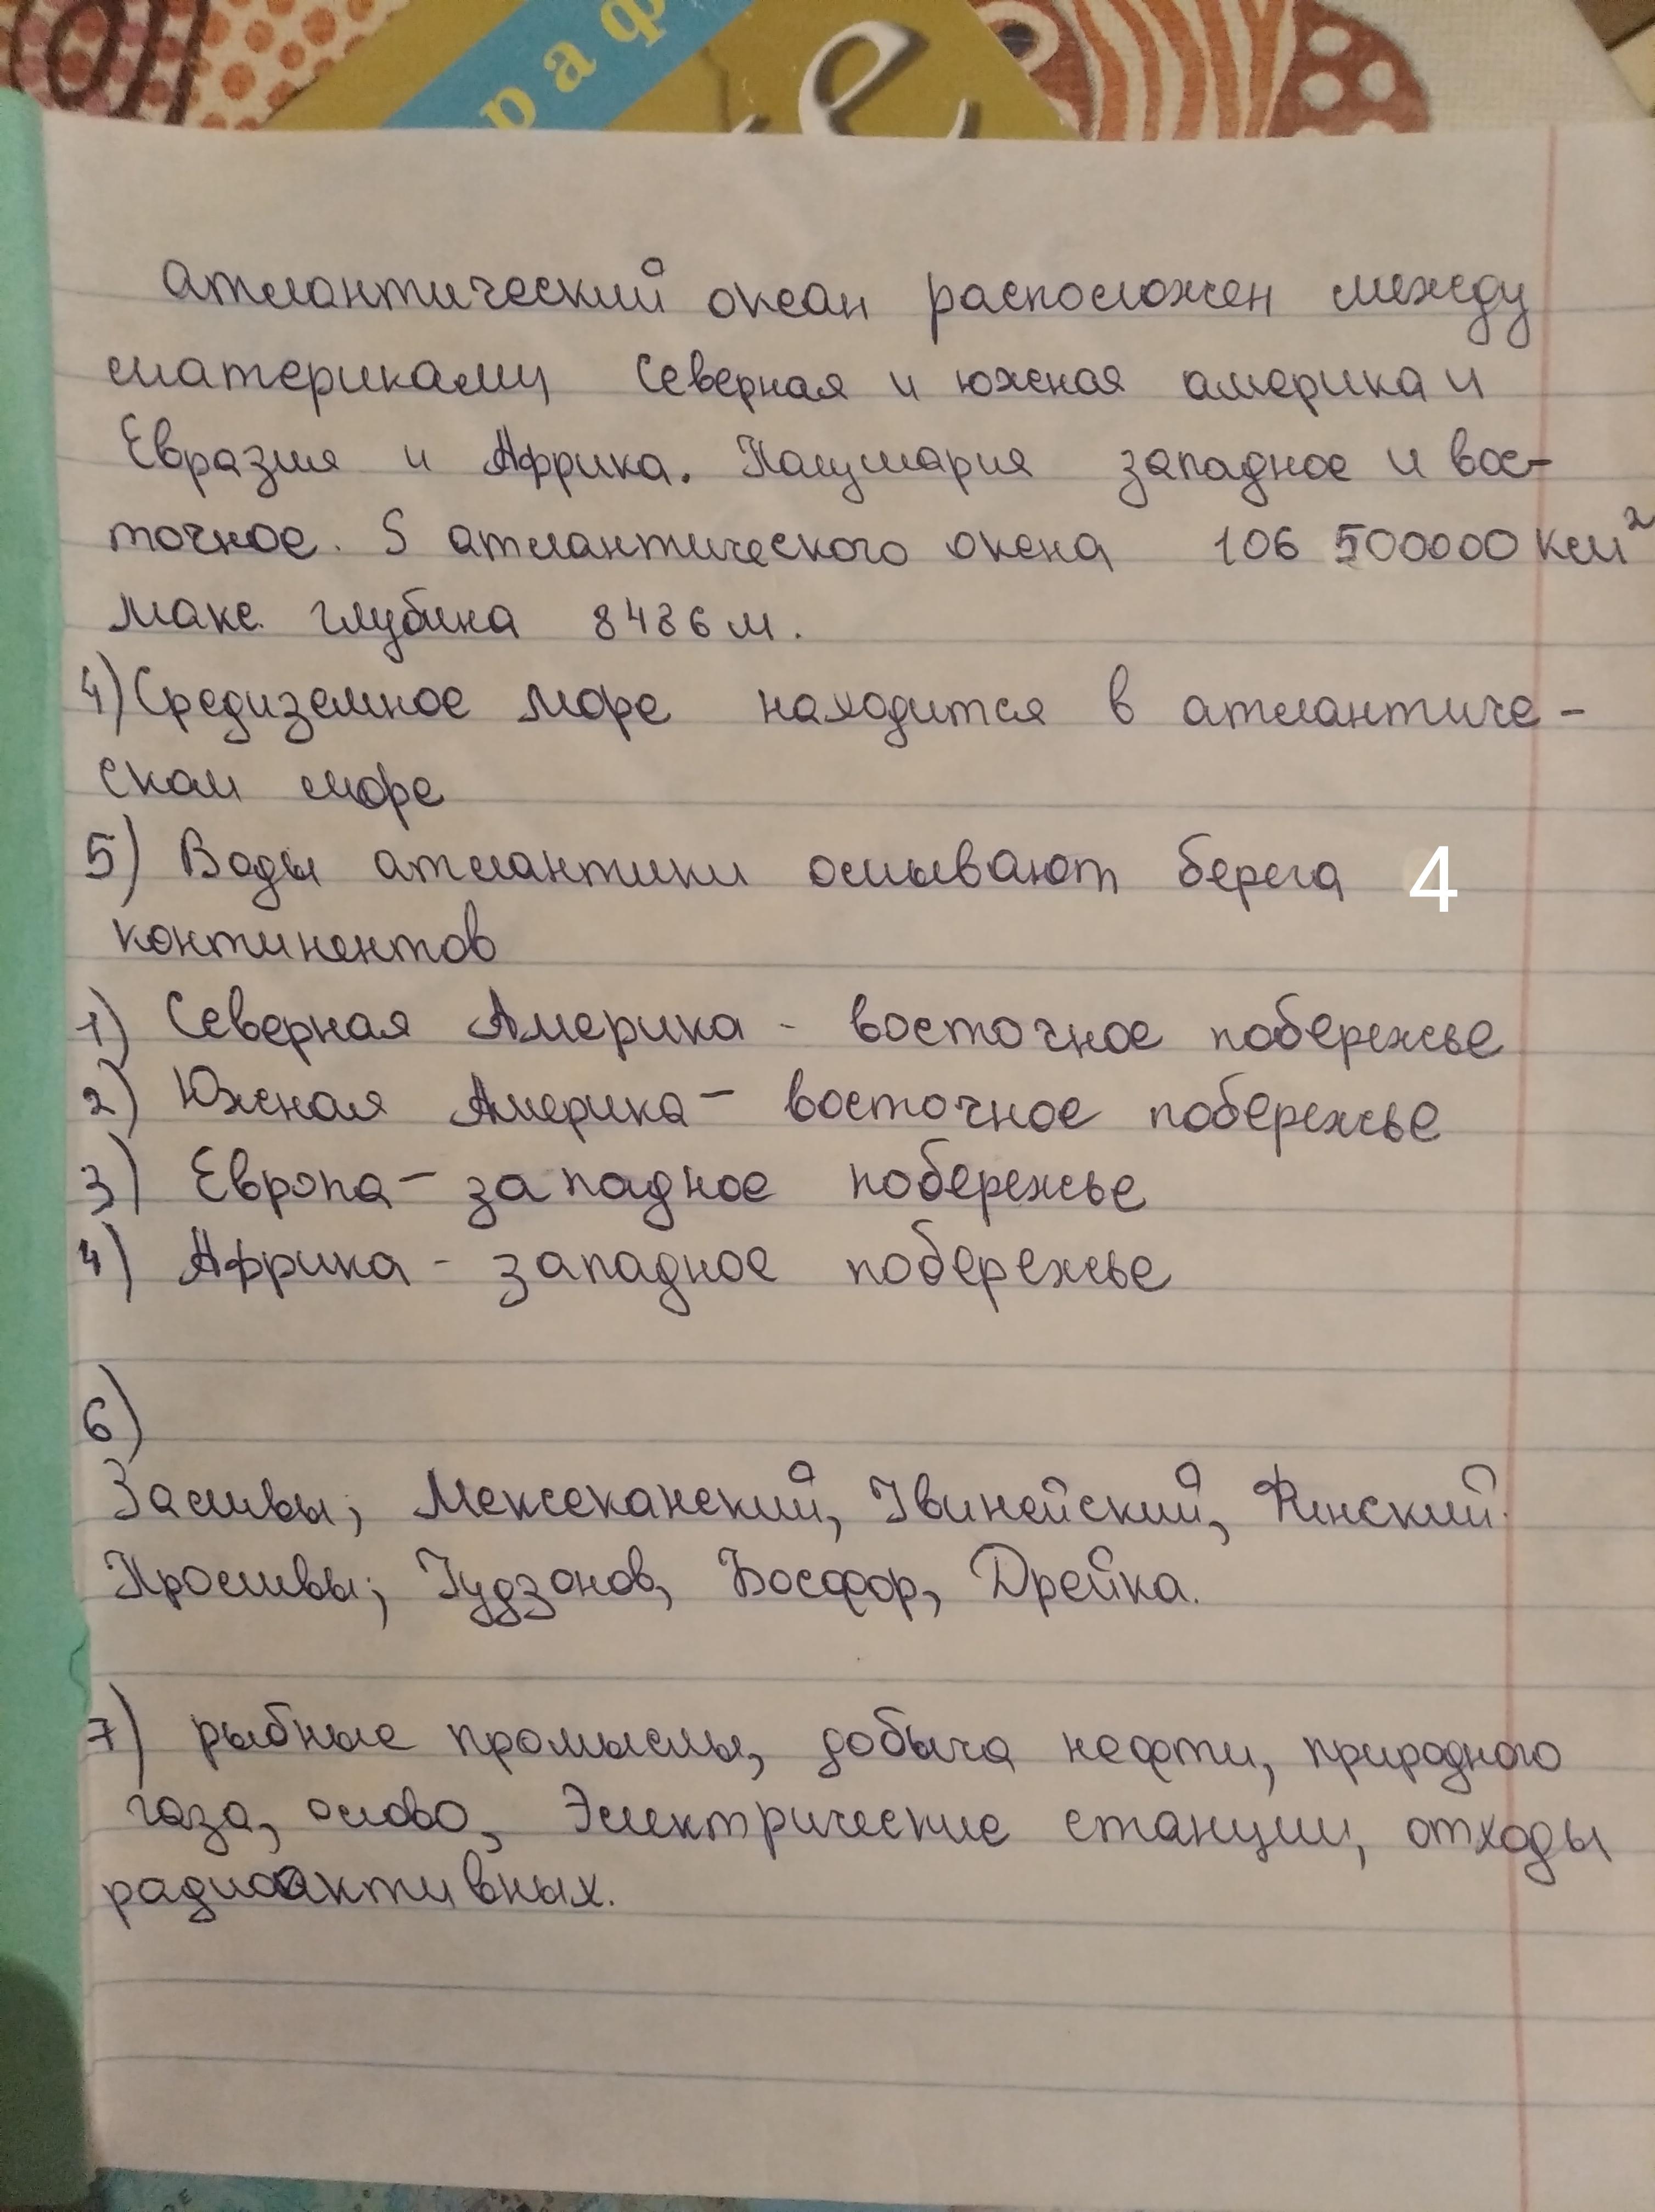 раф
е
атлантический океан расположен между
материками северная и южная америка и
Евразия и Африка. Полушария западное и вос-
точное. S атлантического окена 106 500000 км²
макс. глубина 8486 м.
4) Средиземное море находится в атлантиче-
ском море
5) Воды атлантики омывают берега 4
континентов
1) Северная Америка - восточное побережье
2) Южная Америка - восточное побережье
3) Европа - западное побережье
4) Африка - западное побережье
6)
Заливы; Мексеканский, Гвинейский, Финский.
Проливы; Гудзонов, Босфор, Дрейка.
7) рыбные промыслы, добыча нефти, природного
газа, олово, Электрические станции, отходы
радиоактивных.